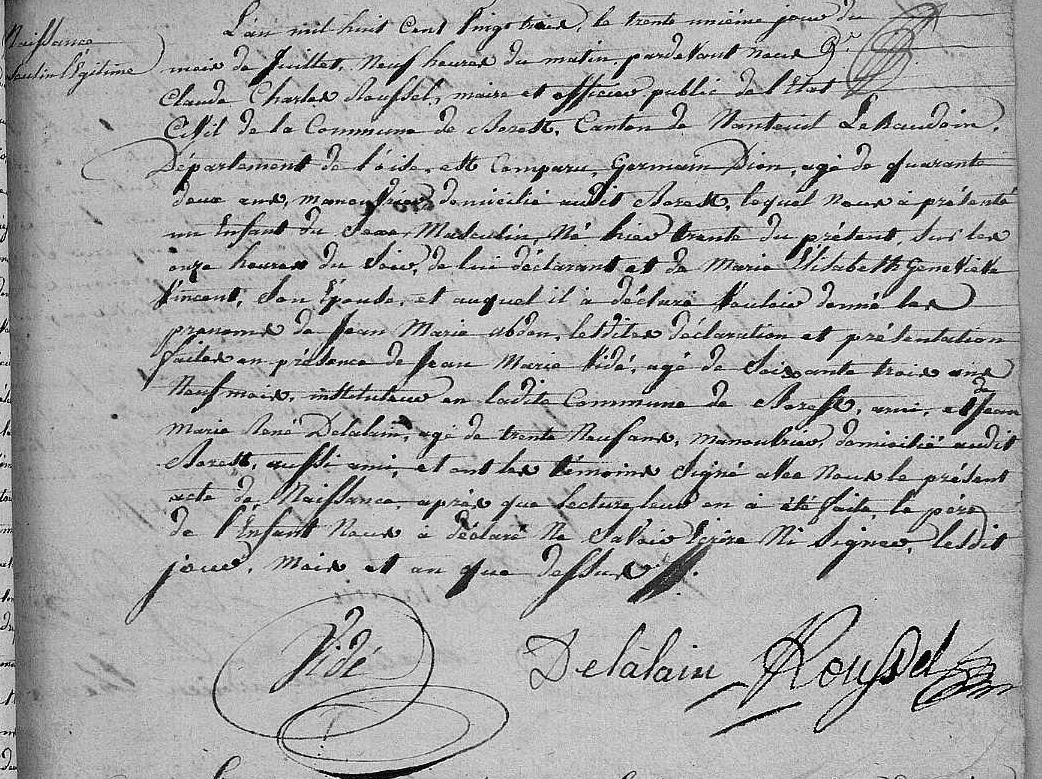 Naissance
Masculin légitime
L'an mil huit Cent vingt trois, le trente unième jour du
mois de Juillet, Neuf heures du matin pardevant Nous
Claude Charles Roussel, maire et officier public de l'Etat
Civil de la Commune de Borest, Canton de Nanteuil Le Haudoin,
Département de l'oise, est Comparu, Germain Dion, agé de quarante
deux ans, manouvrier domicilié audit Borest, lequel Nous à présenté
un Enfant du Sexe Masculin, Né hier trente du présent, sur les
onze heures du Soir, de lui déclarant et de Marie Elisabeth Geneviève
Vincent, Son Epouse, et auquel il à déclaré Vouloir donné les
prenoms de Jean Marie abdon, lesdites déclaration et présentation
faites en présence de Jean Marie Vidé, agé de Soixante trois ans
Neuf mois, instituteur en ladite Commune de Borest, ami, et de Jean
Marie René Delalain, agé de trente Neuf ans, manouvrier, domicilié audit
Borest, aussi ami, et ont les témoins Signé avec Nous le présent
acte de Naissance, après que lecture leur en à été faite, le père
de l'Enfant Nous à déclaré Ne Savoir Ecrire Ni Signer, lesdit
jour, mois et an que dessus
Vidé Delalain Roussel